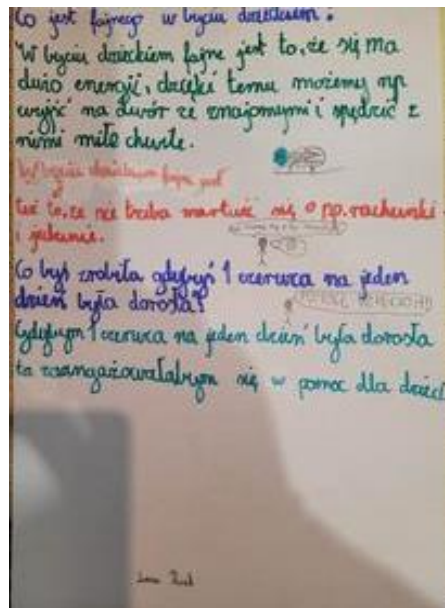 Co jest fajnego w byciu dzieckiem?
W byciu dzieckiem fajne jest to, że się ma
dużo energii, dzięki temu możemy np.
wyjść na dwór ze znajomymi i spędzić z
nimi miłe chwile.
W byciu dzieckiem fajne jest
też to, że nie trzeba martwić się o np. rachunki
i jedzenie.
Co byś zrobiła gdybyś 1 czerwca na jeden
dzień była dorosła?
Gdybym 1 czerwca na jeden dzień była dorosła
to zaangażowałabym się w pomoc dla dzieci